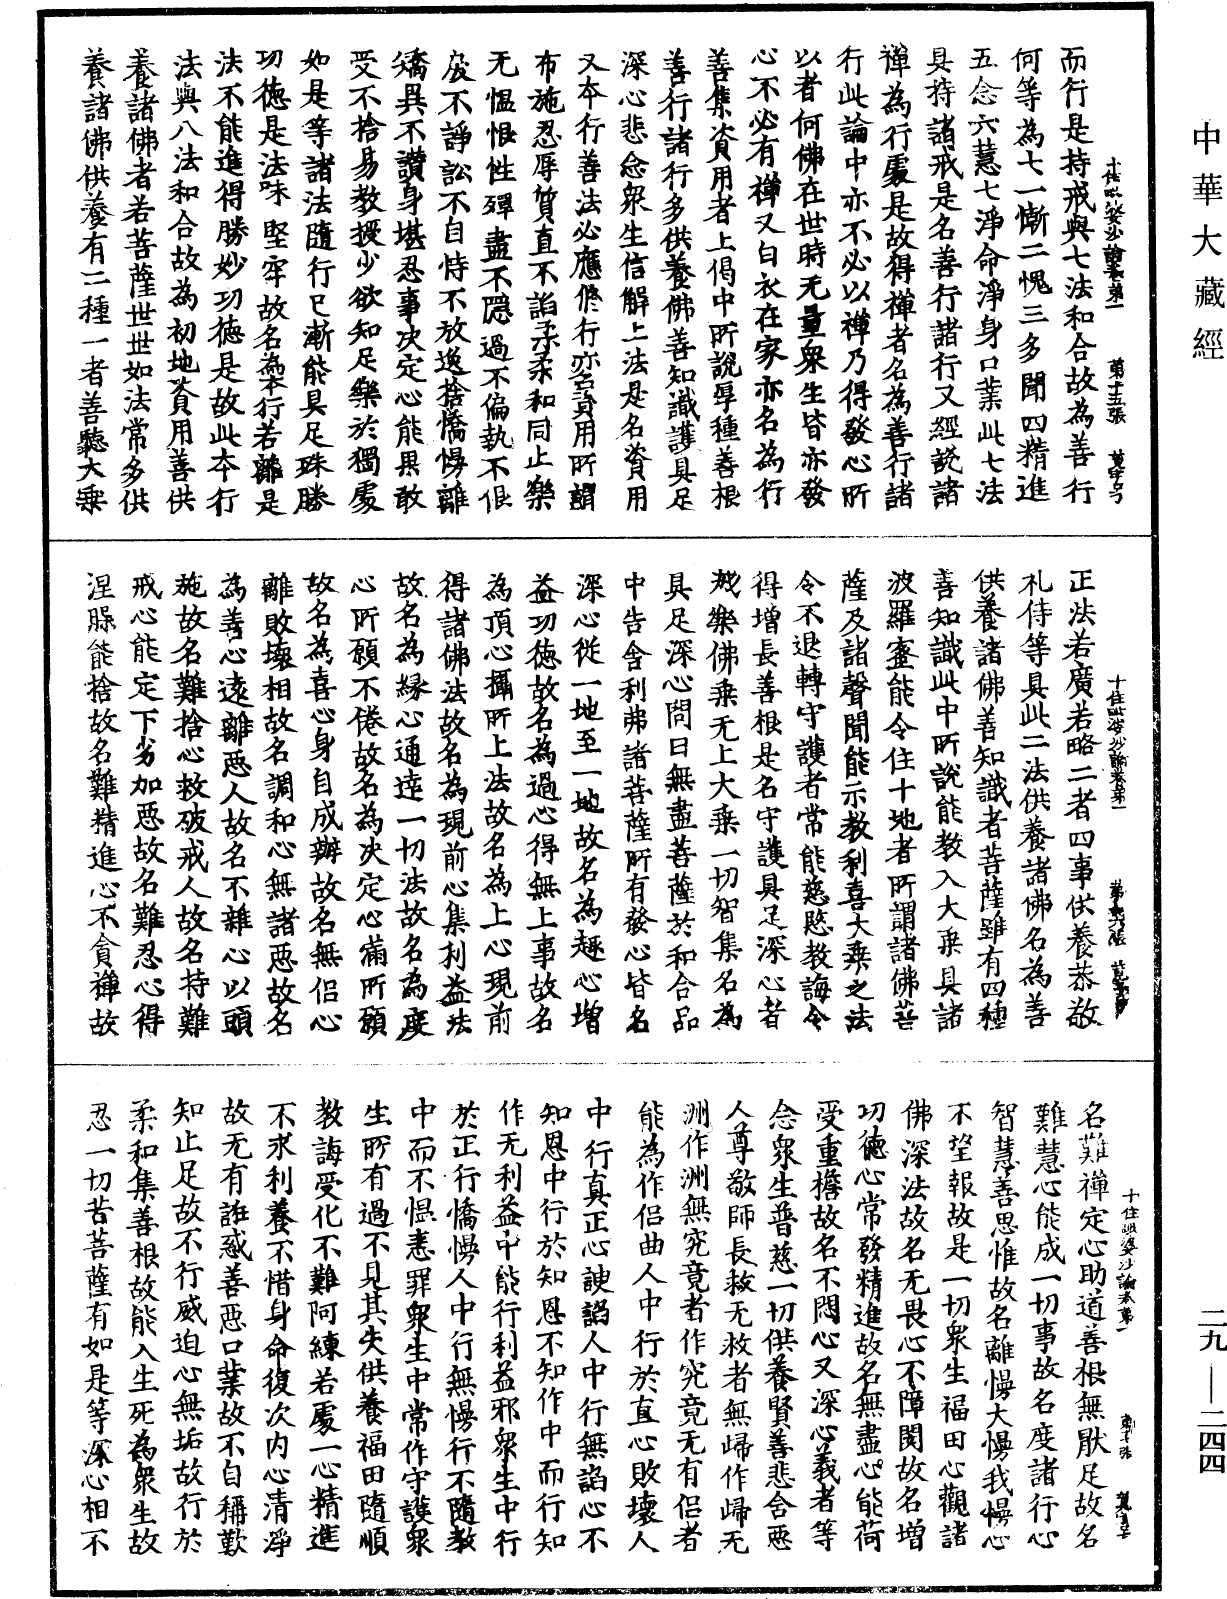 中華大藏經
二九—二四四
而行是持戒與七法和合故為善行
何等為七一慚二愧三多聞四精進
五念六慧七淨命淨身口業此七法
具持諸戒是名善行諸行又經說諸
禪為行處是故得禪者名為善行諸
行此論中亦不必以禪乃得發心所
以者何佛在世時无量眾生皆亦發
心不必有禪又白衣在家亦名為行
善集資用者上偈中所說厚種善根
善行諸行多供養佛善知識護具足
深心悲念眾生信解上法是名資用
又本行善法必應修行亦名資用所謂
布施忍辱質直不諂柔和同止樂
无慍恨性殫盡不隱過不偏執不佷
戾不諍訟不自恃不放逸捨憍慢離
矯異不讚身堪忍事決定心能果敢
受不捨易教授少欲知足樂於獨處
如是等諸法隨行已漸能具足殊勝
功德是法味堅牢故名為本行若離是
法不能進得勝妙功德是故此本行
法與八法和合故為初地資用善供
養諸佛者若菩薩世世如法常多供
養諸佛供養有二種一者善聽大乘
十住毗婆沙論卷第一
正法若廣若略二者四事供養恭敬
礼侍等具此二法供養諸佛名為善
供養諸佛善知識者菩薩雖有四種
善知識此中所說能教入大乘具諸
波羅蜜能令住十地者所謂諸佛菩
薩及諸聲聞能示教利喜大乘之法
令不退轉守護者常能慈愍教誨令
得增長善根是名守護具足深心者
戏樂佛乘无上大乘一切智集名為
具足深心問曰無盡菩薩於和合品
中告舍利弗諸菩薩所有發心皆名
深心從一地至一地故名為趣心增
益功德故名為過心得無上事故名
為頂心攝所上法故名為上心現前
得諸佛法故名為現前心集利益法
故名為緣心通達一切法故名為度
心所願不倦故名為決定心滿所願
故名為喜心身自成辦故名無侶心
離敗壞相故名調和心無諸惡故名
為善心遠離惡人故名不雜心以頭
施故名難捨心救破戒人故名持難
戒心能定下劣加惡故名難忍心得
涅槃能捨故名難精進心不貪禪故
十住毗婆沙論卷第一
名難禪定心助道善根無猒足故名
難慧心能成一切事故名度諸行心
智慧善思惟故名離慢大慢我慢心
不望報故是一切眾生福田心觀諸
佛深法故名无畏心不障閡故名增
功德心常發精進故名無盡心能荷
受重擔故名不悶心又深心義者等
念眾生普慈一切供養賢善悲舍惡
人尊敬師長救无救者無歸作歸无
洲作洲無究竟者作究竟无有侶者
能為作侶曲人中行於直心敗壞人
中行真正心諛諂人中行無諂心不
知恩中行於知恩不知作中而行知
作无利益中能行利益邪眾生中行
於正行憍慢人中行無慢行不隨教
中而不慍恚罪眾生中常作守護眾
生所有過不見其失供養福田隨順
教誨受化不難阿練若處一心精進
不求利養不惜身命復次內心清淨
故无有誑惑善惡口業故不自稱歎
知止足故不行威迫心無垢故行於
柔和集善根故能入生死為眾生故
忍一切苦菩薩有如是等深心相不
十住毗婆沙論卷第一